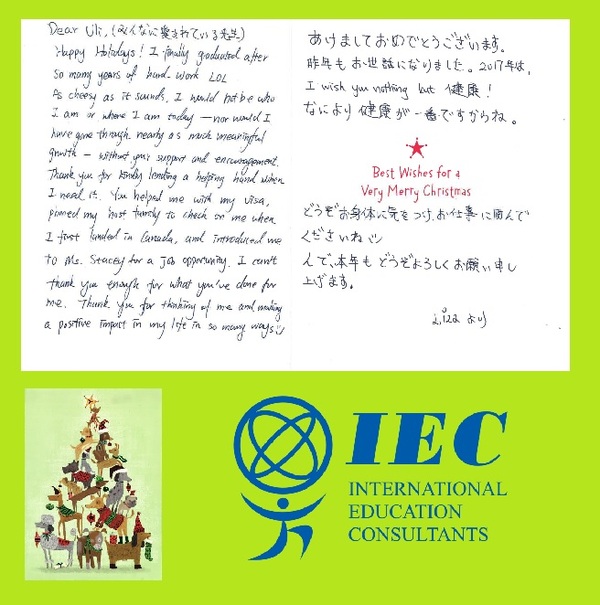 Dear Uli, (みんなに愛されている先生)
Happy Holidays! I finally graduated after
so many years of hard-work LOL
As cheesy as it sounds, I would not be who
I am or where I am today — nor would I
have gone through nearly as much meaningful
growth — without your support and encouragement.
Thank you for kindly lending a helping hand when
I need it. You helped me with my visa,
pinned my host family to check on me when
I first landed in Canada, and introduced me
to Ms. Stacey for a job opportunity. I can't
thank you enough for what you've done for
me. Thank you for thinking of me and making
a positive impact in my life in so many ways
あけましておめでとうございます。
昨年もお世話になりました。2017年は、
I wish you nothing but 健康!
なにより健康が一番ですからね。
Best Wishes for a
Very Merry Christmas
どうぞお身体に気をつけ、お仕事に励んで
くださいね
んで、本年もどうぞよろしくお願い申し
上げます。
より
IEC
INTERNATIONAL
EDUCATION
CONSULTANTS